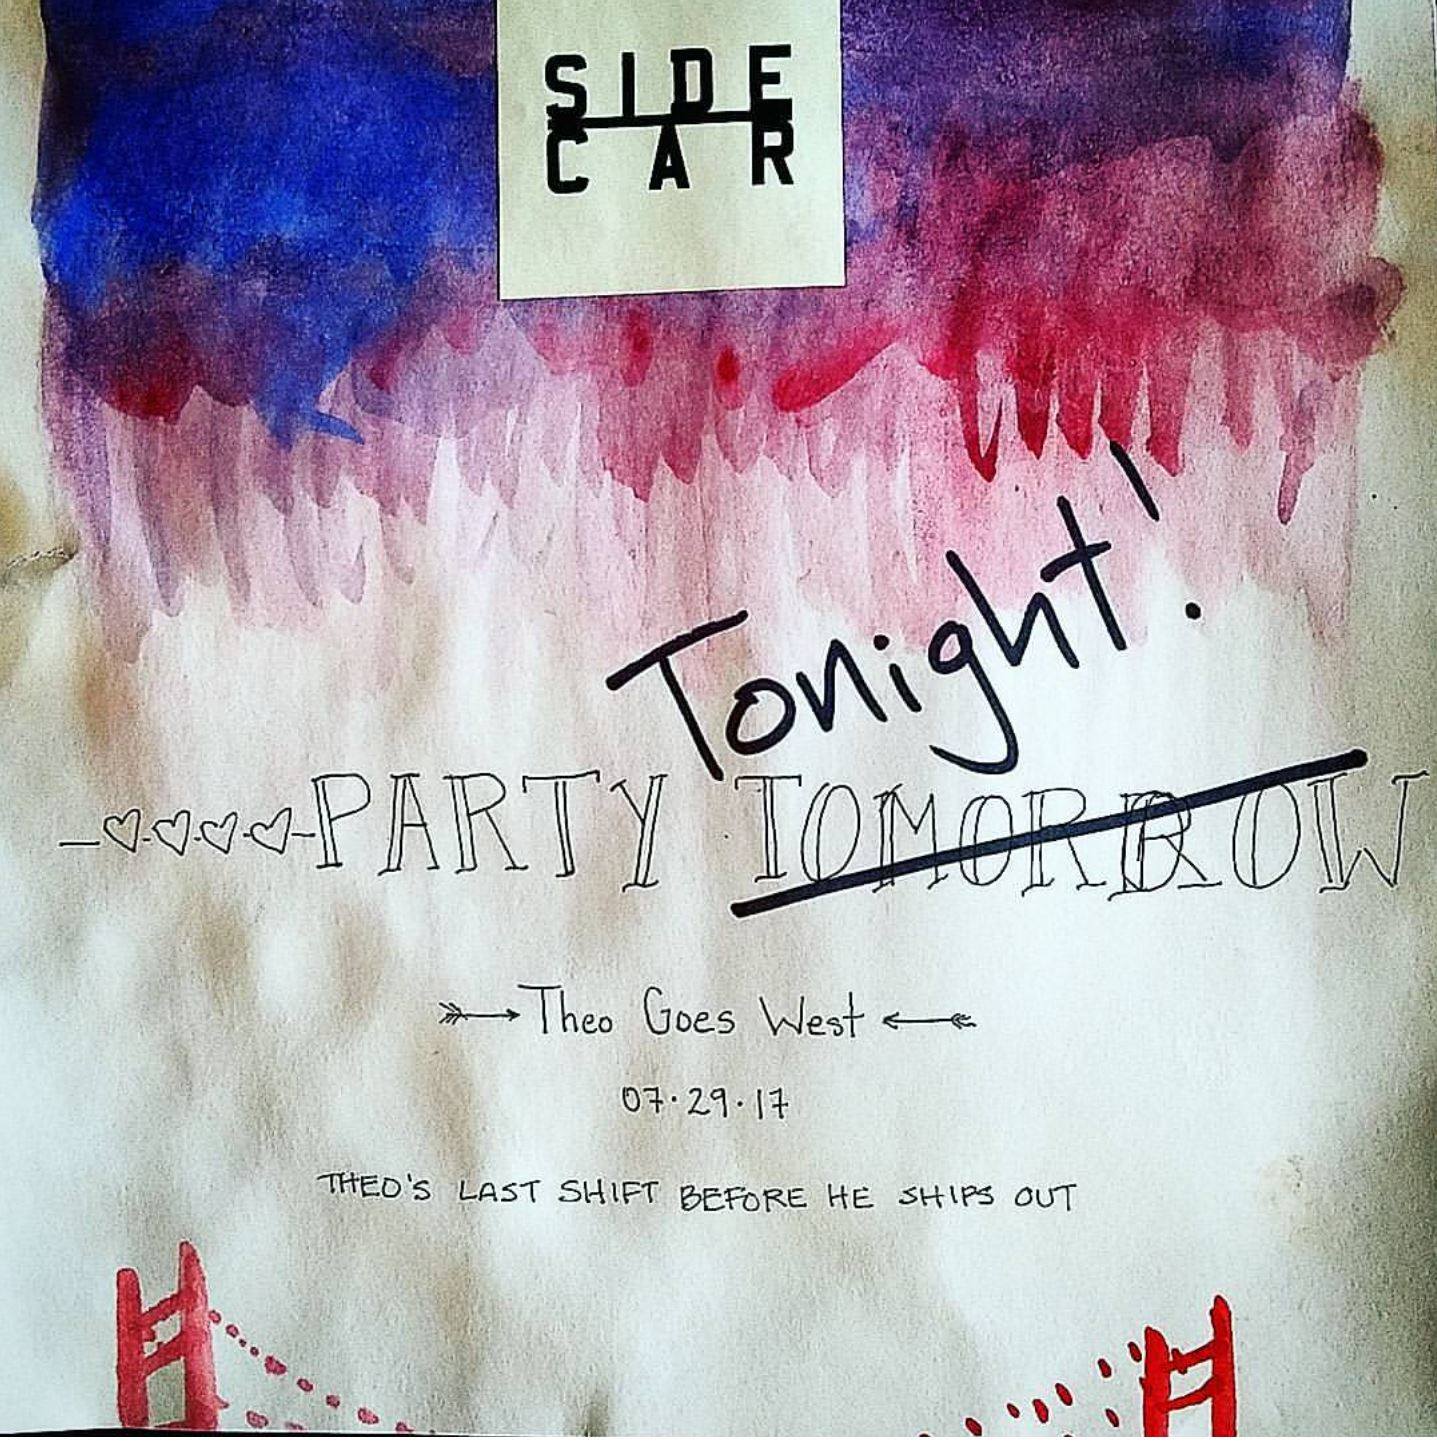 SIDE
CAR
Tonight!
PARTY TOMORROW
Theo Goes West
07·29·17
THEO'S LAST SHIFT BEFORE HE SHIPS OUT